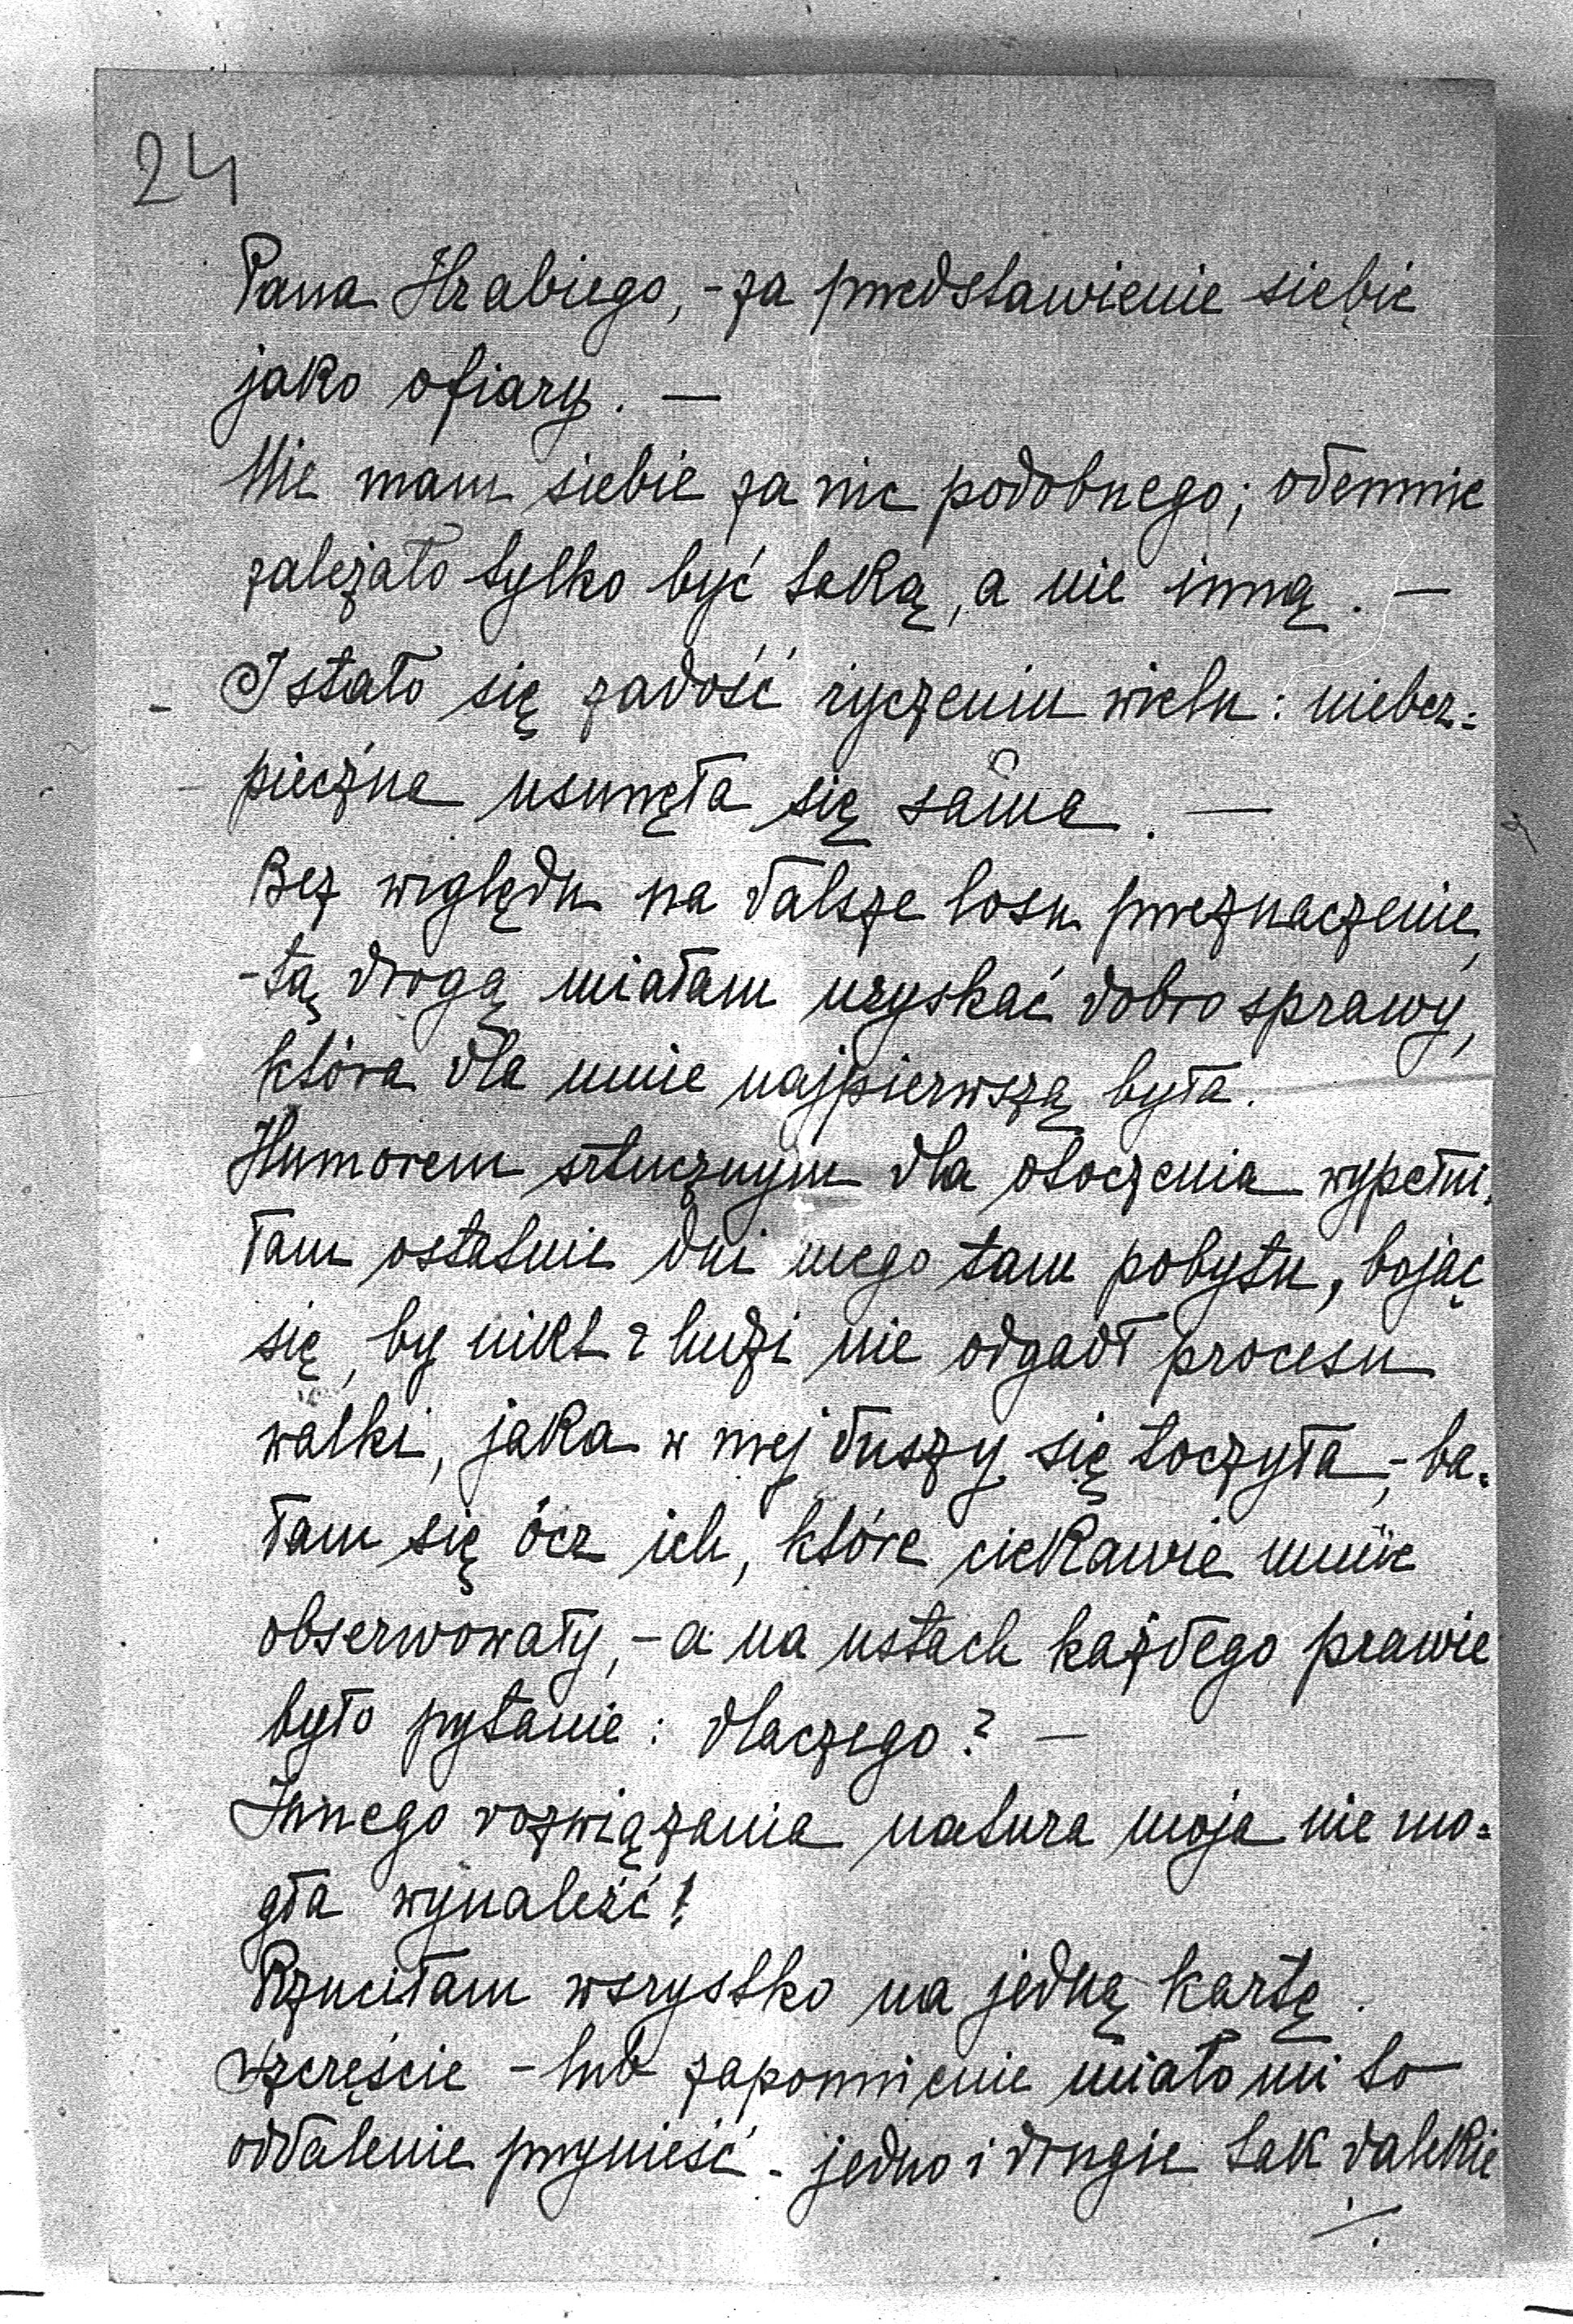 24
Pana Hrabiego, - za przedstawienie siebie
jako ofiary. —
Nie mam siebie za nic podobnego; odemnie
zależało tylko być taką, a nie inną. —
I stało się zadość życzeniu wielu: niebez=
pieczna usunęła się sama. —
Bez względu na dalsze losu przeznaczenie,
- tą drogą miałam uzyskać dobro sprawy,
która dla mnie najpierwszą była.
Humorem sztucznym dla otoczenia wypełni=
łam ostatnie dni mego tam pobytu, bojąc
się, by nikt z ludzi nie odgadł procesu
walki, jaka w mej duszy się toczyła, - ba=
łam się ócz ich, które ciekawie mnie
obserwowały, - a na ustach każdego prawie
było pytanie: dlaczego? —
Innego rozwiązania natura moja nie mo=
gła wynaleźć!
Rzuciłam wszystko na jedną kartę.
Szczęście - lub zapomnienie miało mi to
oddalenie przynieść - jedno i drugie tak dalekie
./.